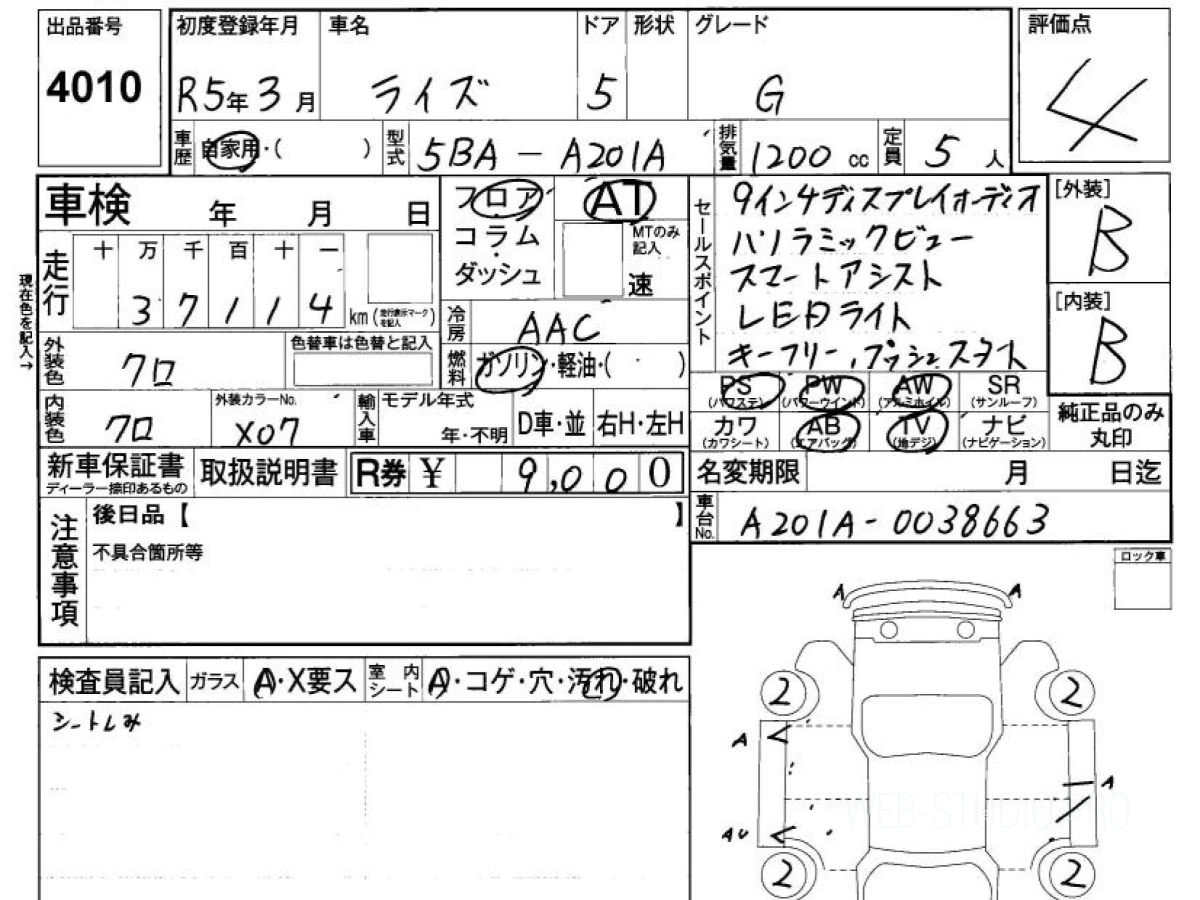 出品番号
4010
初度登録年月 車名 ドア 形状 グレード
R5年3月 ライズ 5 G
評価点
4
車歴 自家用・( ) 型式 5BA-A201A 排気量 1200 cc 定員 5人
車検 年 月 日
フロア
コラム
ダッシュ
AT
MTのみ記入
速
セールスポイント
9インチディスプレイオーディオ
パノラミックビュー
スマートアシスト
LEDライト
キーフリー,プッシュスタート
[外装]
B
[内装]
B
現在色を記入→
走行 十万千百十一
37114 km (走行表示マークを記入)
冷房 AAC
外装色 クロ
色替車は色替と記入
燃料 ガソリン・軽油・( )
内装色 クロ
外装カラーNo.
X07
輸入車 モデル年式
年・不明
D車・並 右H・左H
PS PW AW SR
(パワステ) (パワーウインド) (アルミホイル) (サンルーフ)
カワ AB TV ナビ
(カワシート) (エアバッグ) (地デジ) (ナビゲーション)
純正品のみ
丸印
新車保証書
ディーラー捺印あるもの
取扱説明書
R券 ¥ 9,000
名変期限 月 日迄
車台No. A201A-0038663
注意事項
後日品【 】
不具合箇所等
ロック車
検査員記入 ガラス A・X要ス 室内シート A・コゲ・穴・汚れ・破れ
シートしみ
A A
2 2
A
A
AU
2 2
WEB-STUDIO.PRO